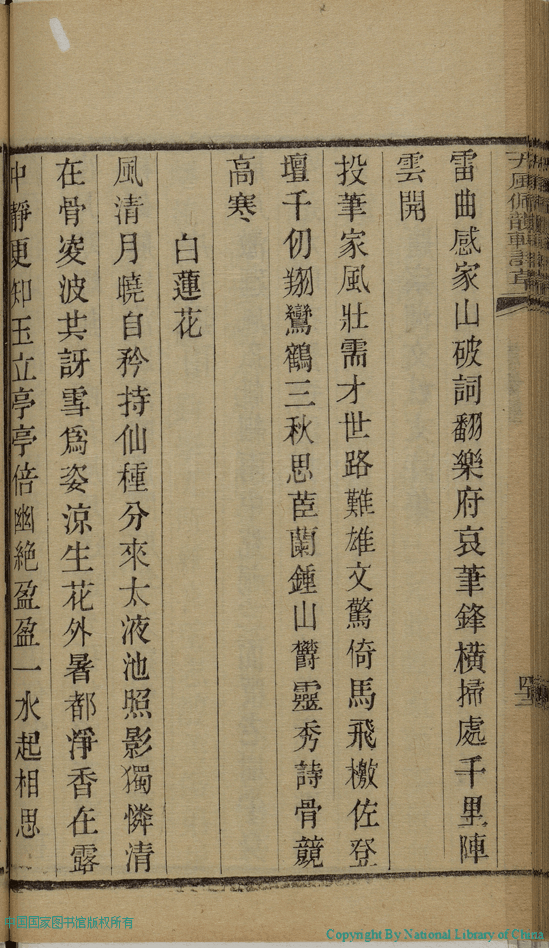 雷曲感家山破詞翻樂府哀筆鋒橫掃處千里陣
雲開
投筆家風壯需才世路難雄文驚倚馬飛檄佐登
壇千仞翔鸞鶴三秋思茝蘭鍾山鬱靈秀詩骨競
高寒
白蓮花
風清月曉自矜持仙種分來太液池照影獨憐清
在骨凌波共訝雪爲姿涼生花外暑都淨香在露
中靜更知玉立亭亭倍幽絶盈盈一水起相思
中国国家图书馆版权所有
Copyright By National Library of China